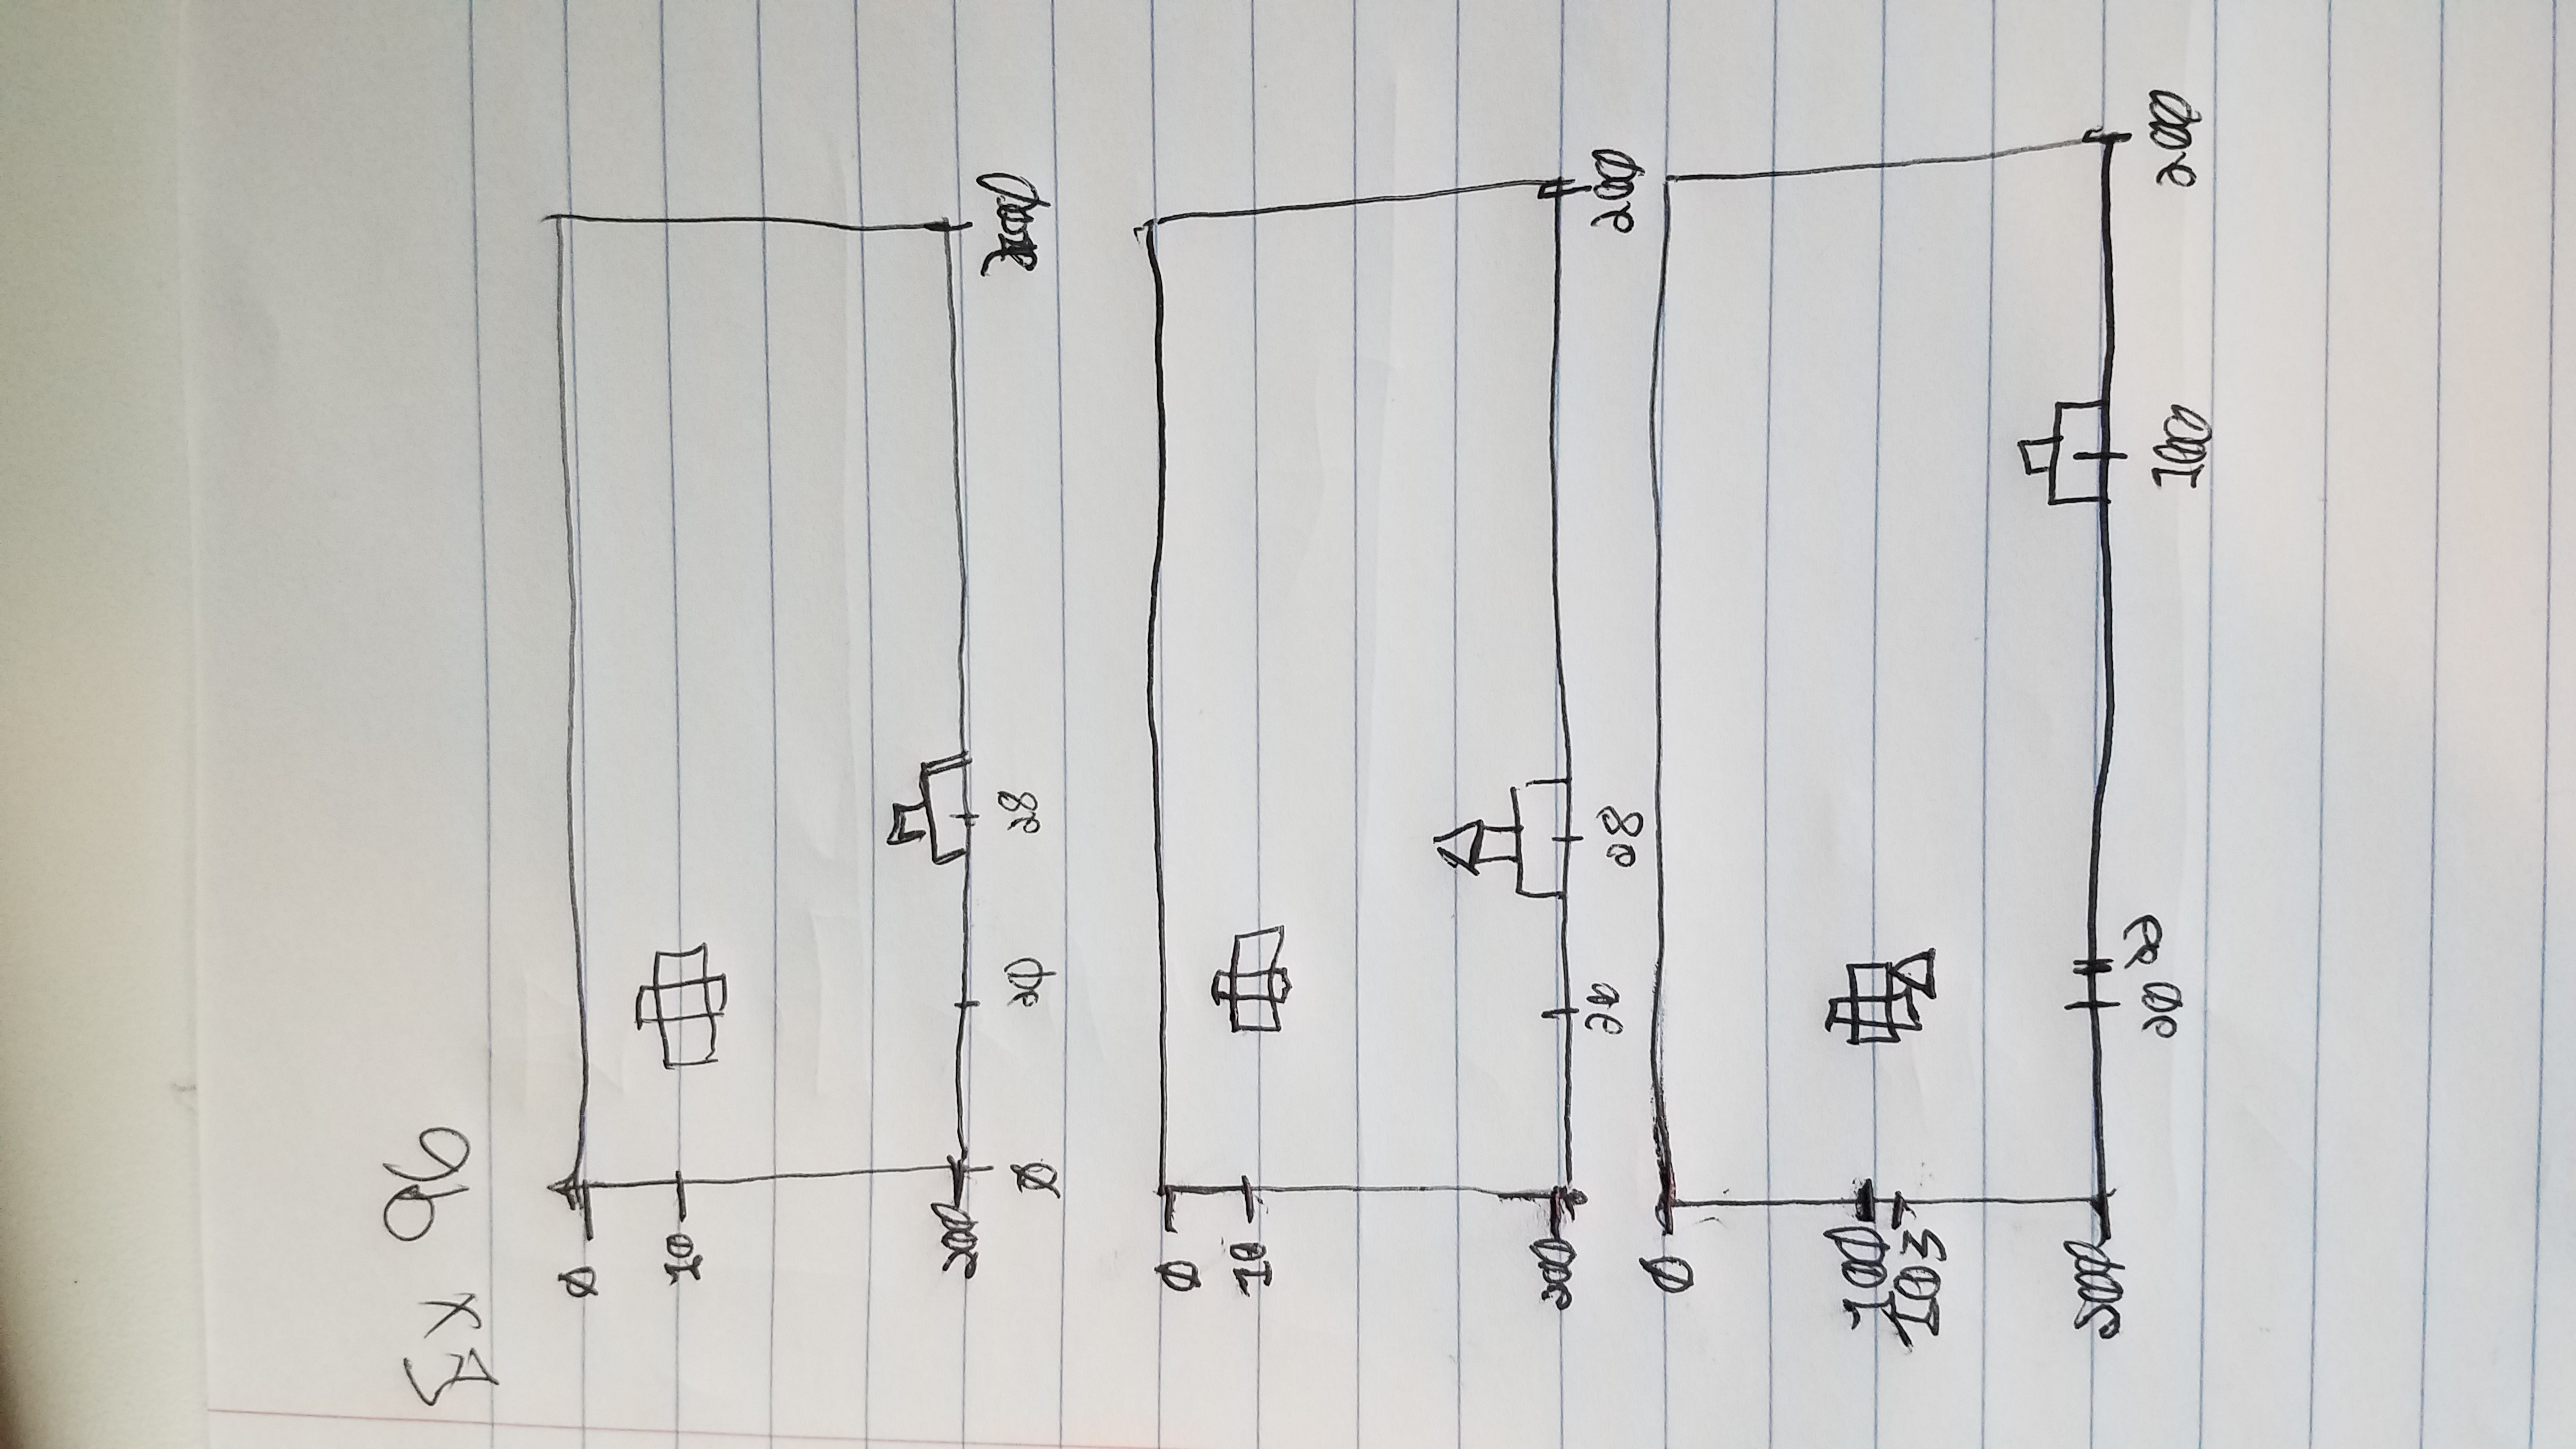 Ex 96
0
10
200
0 20 28
0
10
200
20 28 200
0
100
103
500
20 22 100 200